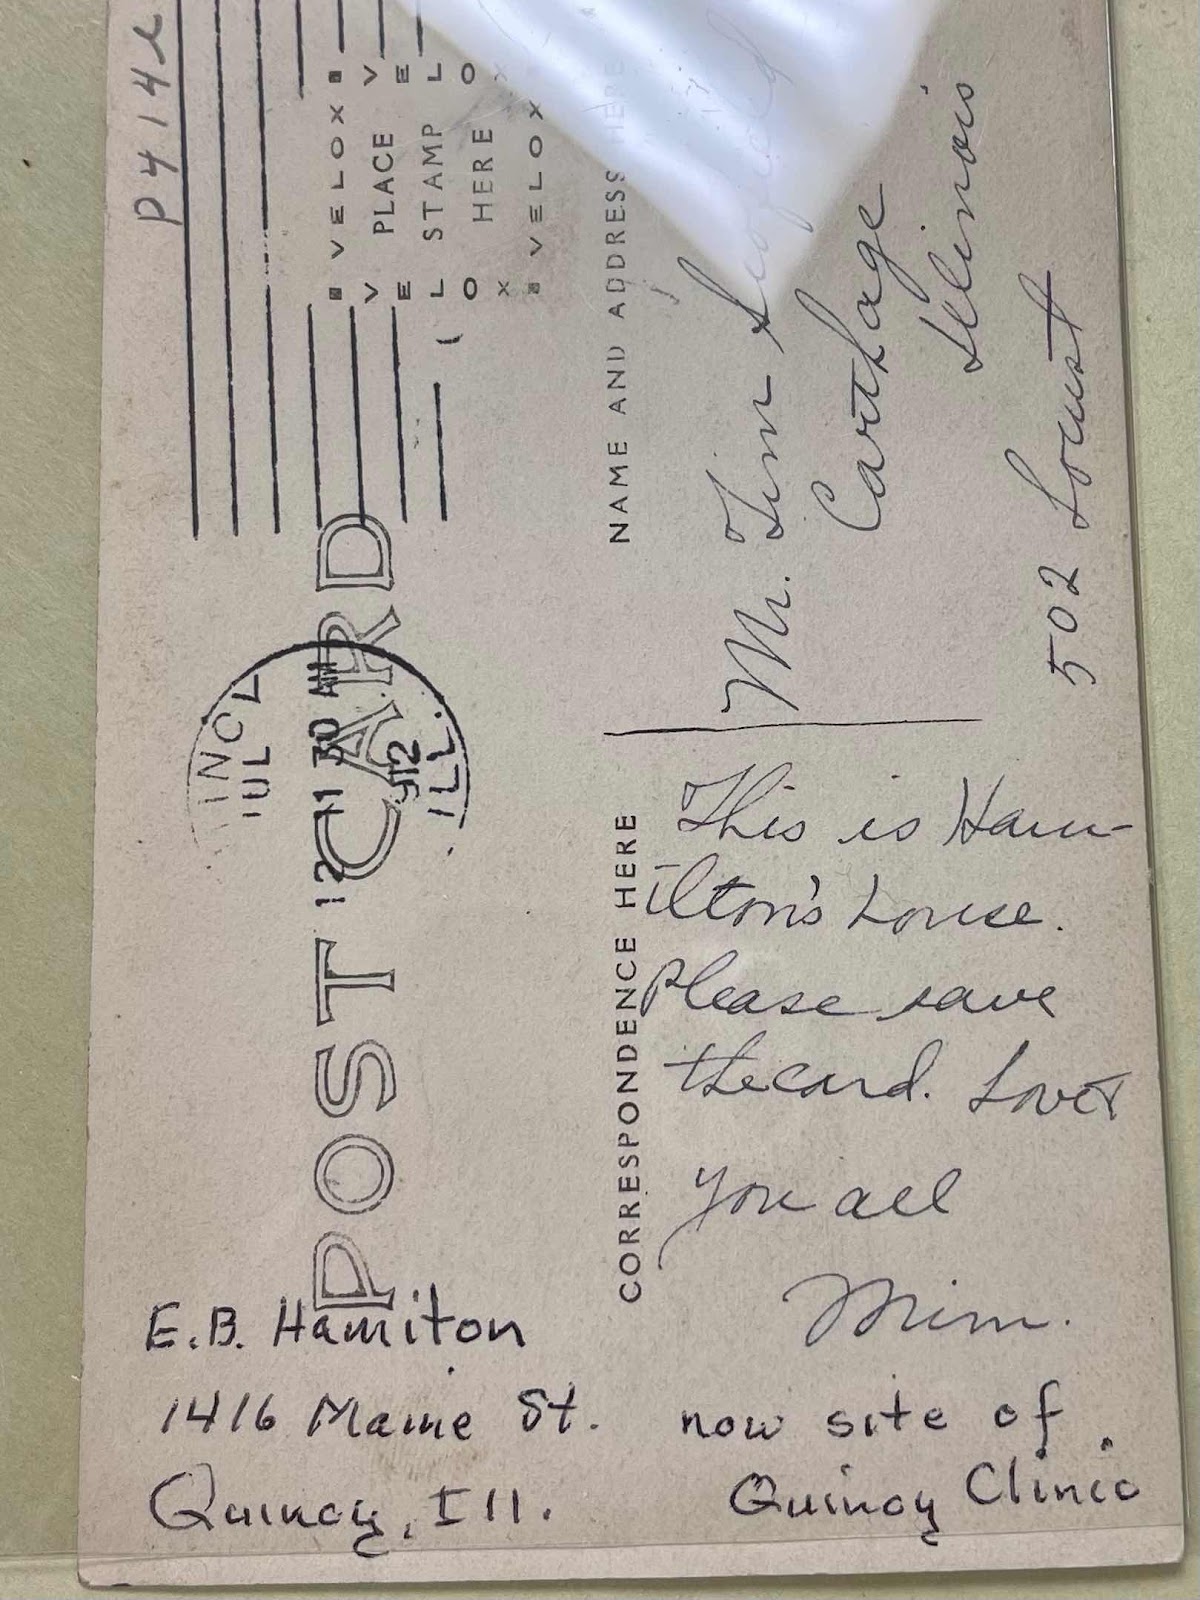 P414
POST CARD
INCY
JUL
12
11 30 AM
912
ILL.
VELOX
PLACE
STAMP
HERE
VELOX
CORRESPONDENCE HERE
NAME AND ADDRESS HERE
This is Ham-
ilton's house.
Please save
the card. Love
You all
Mim.
Mr. Tim
Carthage
Illinois
502 Locust
E.B. Hamiton
1416 Maine St.
Quincy, Ill.
now site of
Quincy Clinic